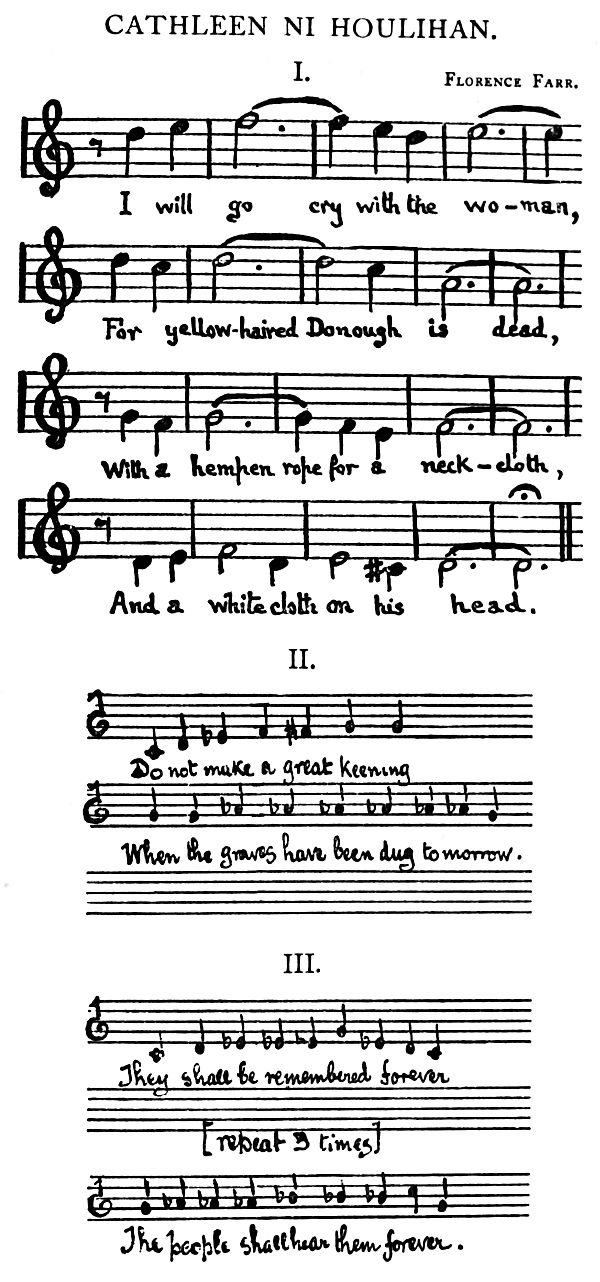 CATHLEEN NI HOULIHAN.
I.
FLORENCE FARR.
I will go cry with the wo-man,
For yellow-haired Donough is dead,
With a hempen rope for a neck-cloth,
And a white cloth on his head.
II.
Do not make a great keening
When the graves have been dug tomorrow.
III.
They shall be remembered forever
[repeat 3 times]
The people shall hear them forever.